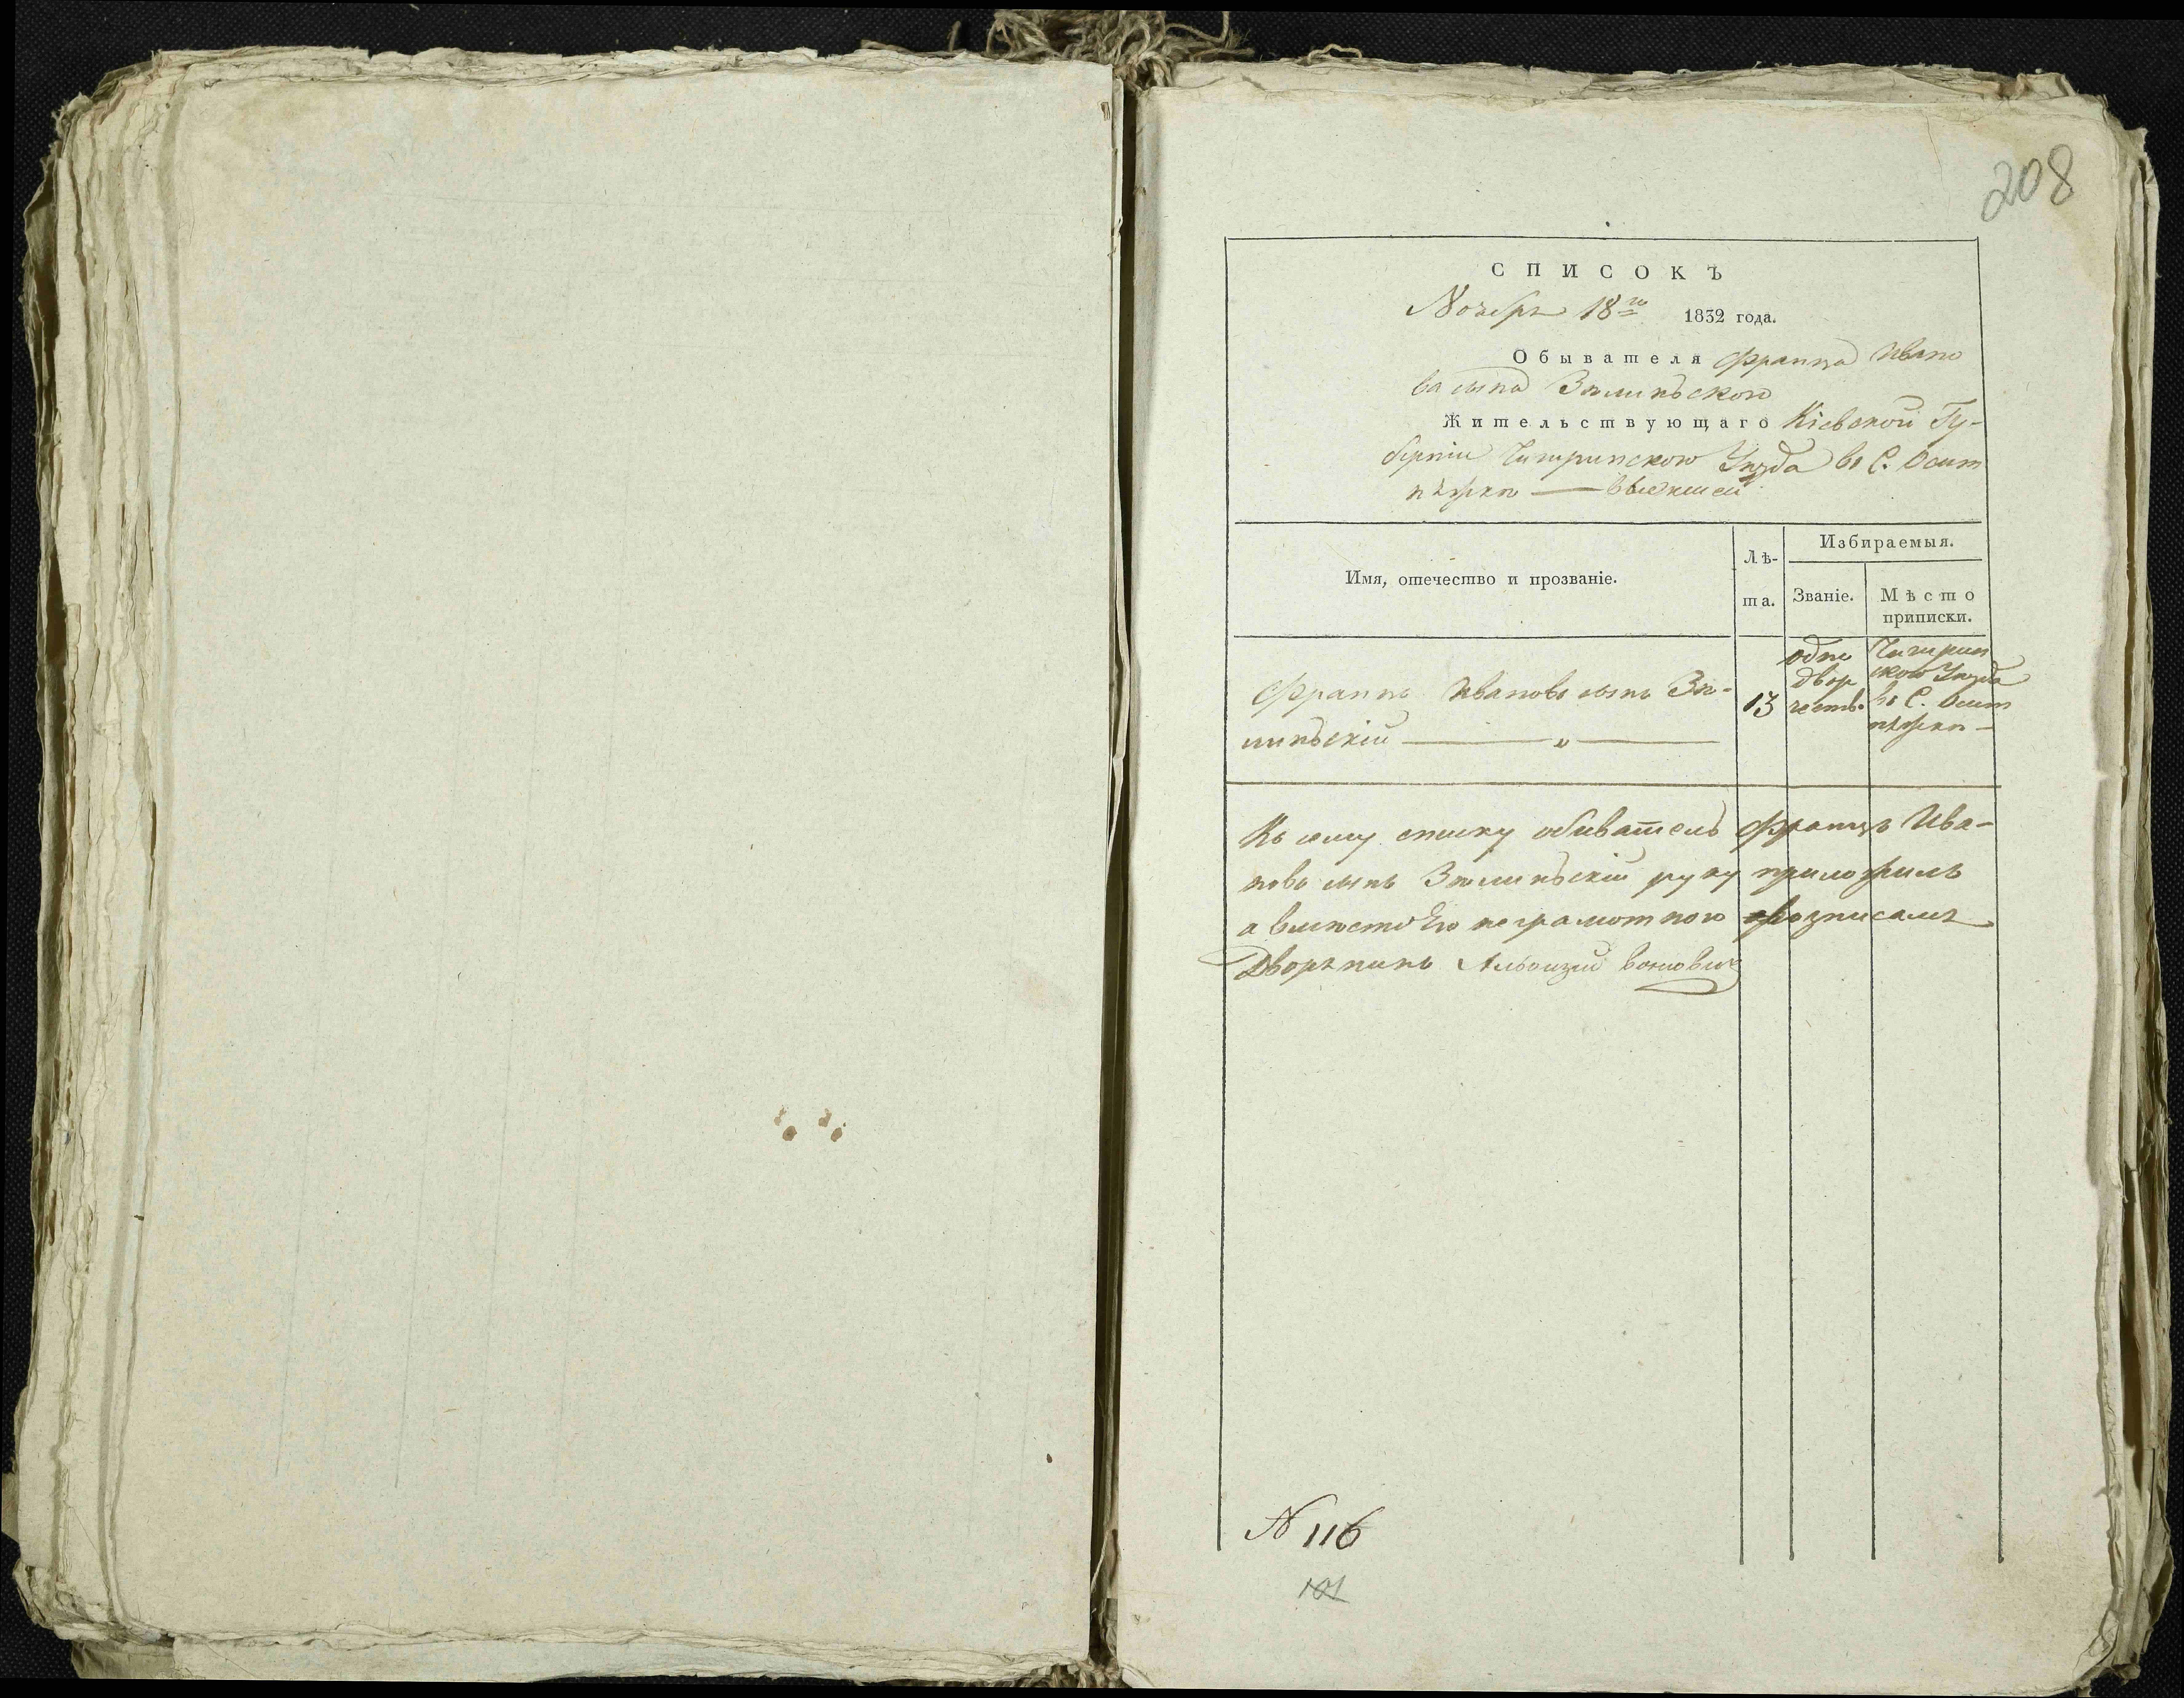 208
СПИСОКЪ
Ноября 18го 1832 года.
Обывателя Франца Ивано
ва сына Зѣлиньского
Жительствующаго Кіевской Гу-
берніи Чигринского Уѣзда въ С. Осит
няжкѣ —
Имя, отечество и прозваніе.
Лѣ-
та.
Избираемыя.
Званіе.
Мѣсто
приписки.
Францъ Ивановъ сынъ Зѣ-
линьскій
13
одно
двор
чество.
Чигрин
ского Уѣзда
въ С. Осит
няжкѣ —
Къ сему списку обиватель Францъ Ива-
новъ сынъ Зѣлиньскій руку приложилъ
а вмѣсто Его неграмотного росписался
Дворянинъ Альоизий
N 116
101